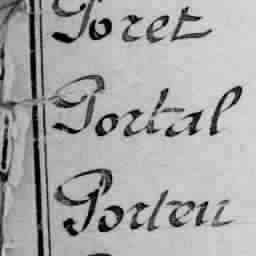 Poret
Portal
Porteu